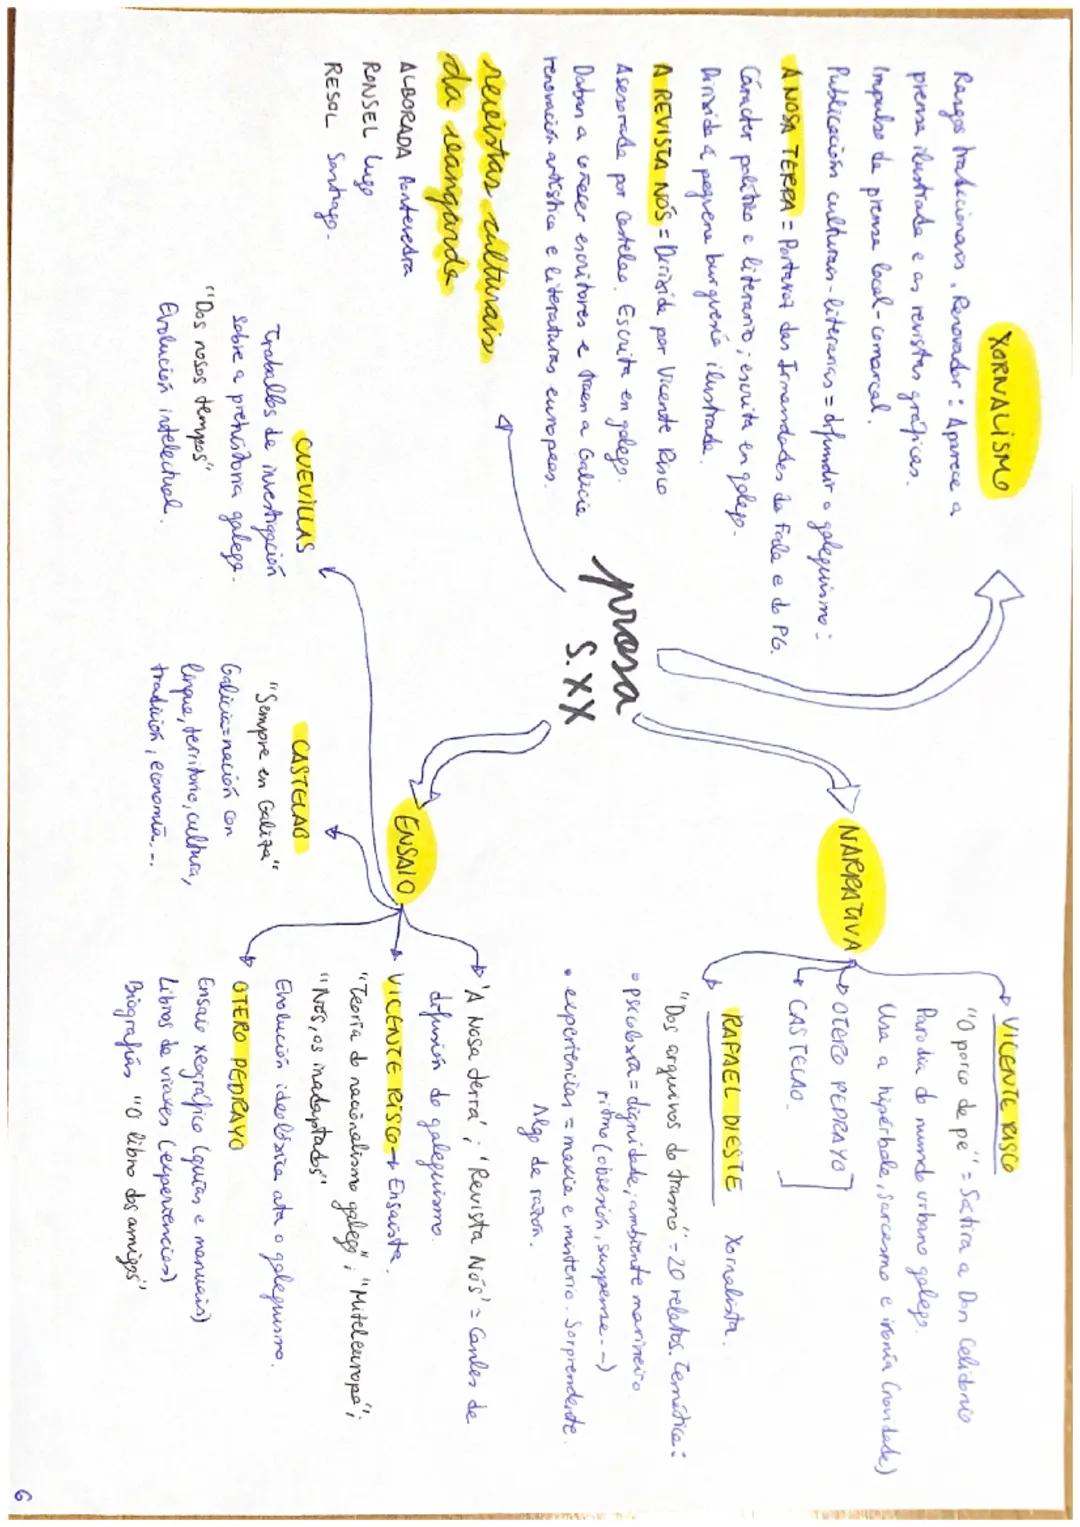 XORNALISMO
Rasgos tradicionais. Renovador: Aparece a
prensa ilustrada e as revistas gráficas.
Impulso da prensa local-comarcal.
Publicación culturais-literarias = difundir o galeguismo:
A NOSA TERRA = Portavoz das Irmandades da Fala e do PG.
Carácter político e literario; escrita en galego.
Dirixida á pequena burguesía ilustrada.
A REVISTA NÓS = Dirixida por Vicente Risco
Asesorada por Castelao. Escrita en galego.
Daban a coñecer escritores e traen a Galicia
renovación artística e literaturas europeas.
revistas culturais
da vangarda
ALBORADA Pontevedra
RONSEL Lugo
RESOL Santiago.
prosa
S.XX
NARRATIVA
VICENTE RISCO
"O porco de pé" = Sátira a Don Celidonio
Parodia do mundo urbano galego.
Usa a hipérbole, sarcasmo e ironía (novidade)
OTERO PEDRAYO
CASTELAO.
RAFAEL DIESTE Xornalista.
"Dos arquivos do trasno" = 20 relatos. Temática:
• psicoloxía = dignidade; ambiente mariñeiro
ritmo (obsesión, suspense...)
• experiencias = maxia e misterio. Sorprendente.
Algo de razón.
ENSAIO
'A Nosa terra'; 'Revista Nós' = Canles de
difusión do galeguismo.
VICENTE RISCO → Ensaísta.
"Teoría do nacionalismo galego"; "Mitteleuropa";
"Nós, os inadaptados"
Evolución ideolóxica ata o galeguismo.
OTERO PEDRAYO
Ensaio xeográfico (guías e manuais)
Libros de viaxes (experiencias)
Biografías "O libro dos amigos"
CASTELAO
"Sempre en Galiza"
Galicia = nación con
lingua, territorio, cultura,
tradición, economía,...
CUEVILLAS
Traballos de investigación
sobre a prehistoria galega.
"Dos nosos tempos"
Evolución intelectual.
6